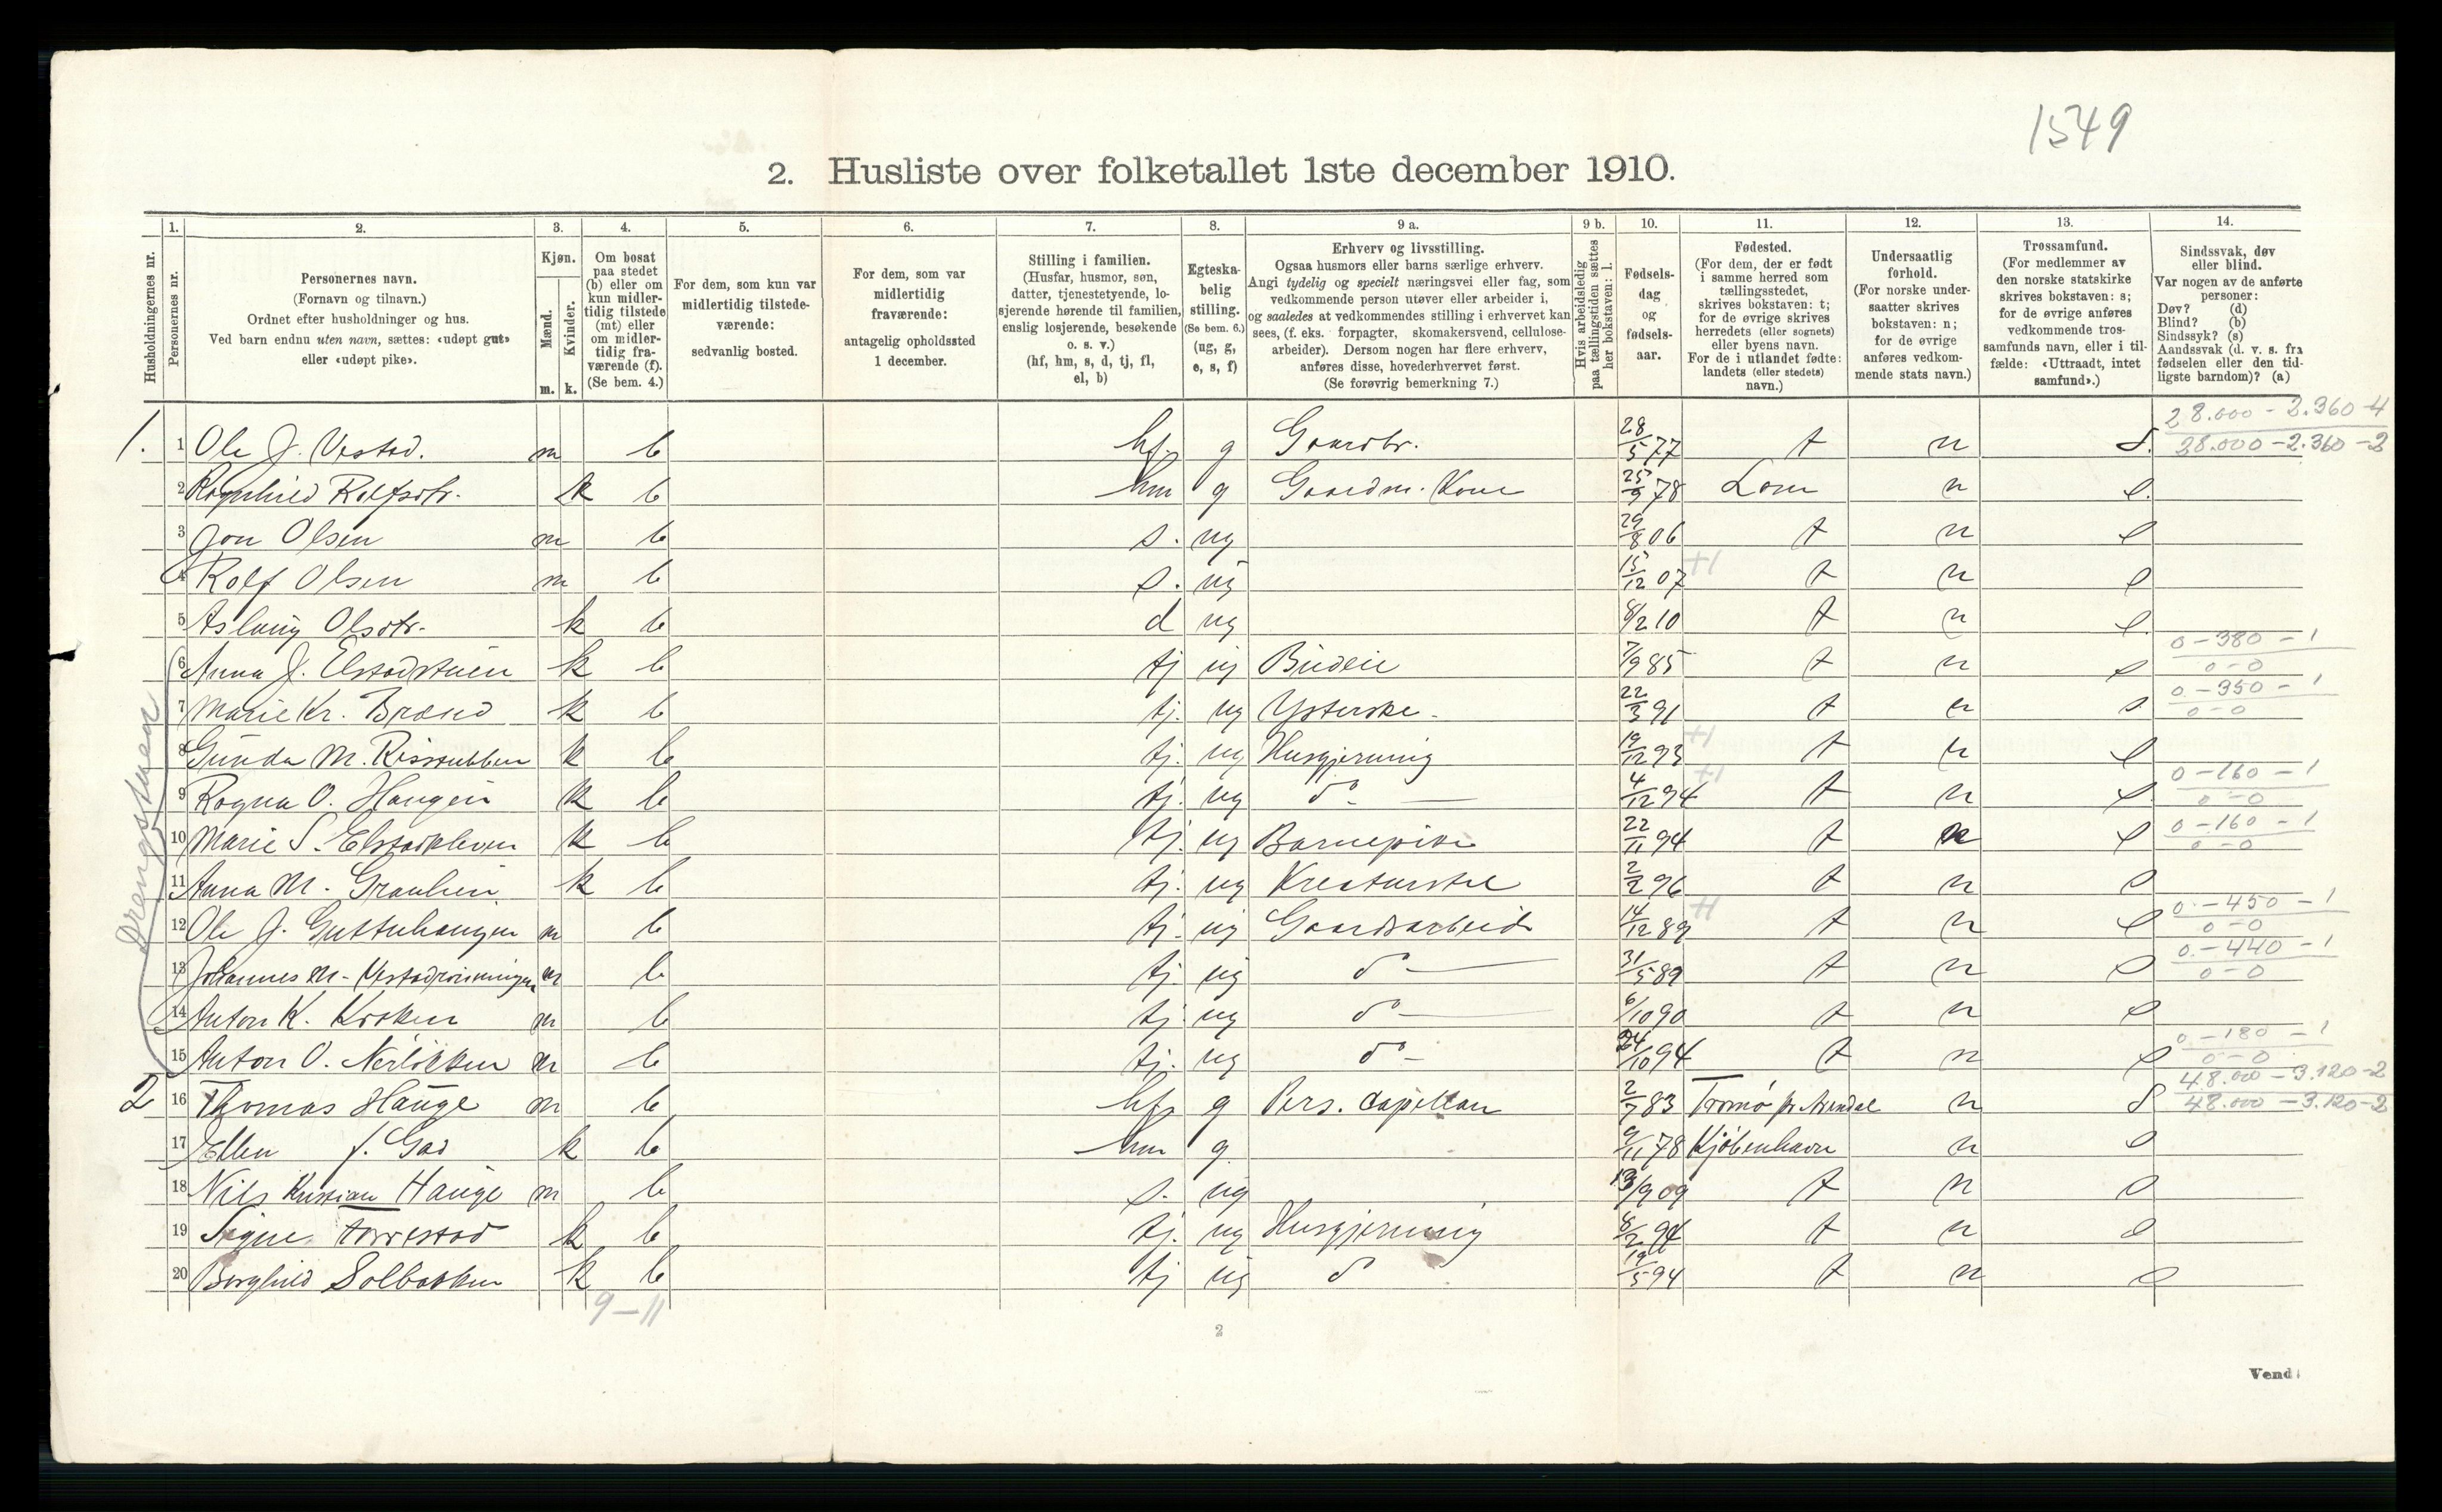 1549
2. Husliste over folketallet 1ste december 1910.
Husholdningernes nr.
1. Personernes nr.
2. Personernes navn.
(Fornavn og tilnavn.)
Ordnet efter husholdninger og hus.
Ved barn endnu uten navn, sættes: «udøpt gut»
eller «udøpt pike».
3. Kjøn.
Mænd. Kvinder.
m. k.
4. Om bosat
paa stedet
(b) eller om
kun midler-
tidig tilstede
(mt) eller
om midler-
tidig fra-
værende (f).
(Se bem. 4.)
5. For dem, som kun var
midlertidig tilstede-
værende:
sedvanlig bosted.
6. For dem, som var
midlertidig
fraværende:
antagelig opholdssted
1 december.
7. Stilling i familien.
(Husfar, husmor, søn,
datter, tjenestetyende, lo-
sjerende hørende til familien,
enslig losjerende, besøkende
o. s. v.)
(hf, hm, s, d, tj, fl,
el, b)
8. Egteska-
belig
stilling.
(Se bem. 6.)
(ug, g,
e, s, f)
9 a. Erhverv og livsstilling.
Ogsaa husmors eller barns særlige erhverv.
Angi tydelig og specielt næringsvei eller fag, som
vedkommende person utøver eller arbeider i,
og saaledes at vedkommendes stilling i erhvervet kan
sees, (f. eks. forpagter, skomakersvend, cellulose-
arbeider). Dersom nogen har flere erhverv,
anføres disse, hovederhvervet først.
(Se forøvrig bemerkning 7.)
9 b. Hvis arbeidsledig
paa tællingstiden sættes
her bokstaven: l.
10. Fødsels-
dag
og
fødsels-
aar.
11. Fødested.
(For dem, der er født
i samme herred som
tællingsstedet,
skrives bokstaven: t;
for de øvrige skrives
herredets (eller sognets)
eller byens navn.
For de i utlandet fødte:
landets (eller stedets)
navn.)
12. Undersaatlig
forhold.
(For norske under-
saatter skrives
bokstaven: n;
for de øvrige
anføres vedkom-
mende stats navn.)
13. Trossamfund.
(For medlemmer av
den norske statskirke
skrives bokstaven: s;
for de øvrige anføres
vedkommende tros-
samfunds navn, eller i til-
fælde: «Uttraadt, intet
samfund».)
14. Sindssvak, døv
eller blind.
Var nogen av de anførte
personer:
Døv? (d)
Blind? (b)
Sindssyk? (s)
Aandssvak (d. v. s. fra
fødselen eller den tid-
ligste barndom)? (a)
28.000 - 2.360 - 4
1. 1 Ole J. Vestad. m b hf. g Gaardbr. 28/5 77 t n s. 28.000 - 2.360 - 2
2 Ragnhild Rolfsdtr. k b hm g Gaardm. Kone 25/9 78 Lom n s.
3 Jon Olsen m b s. ug 29/8 06 t n s
4 Rolf Olsen m b s. ug 15/12 07 +1 t n s
5 Aslaug Olsdtr. k b d ug 8/2 10 t n s.
0 - 380 - 1
6 Anna J. Elstadstuen k b tj ug Budeie 7/9 85 t n s 0 - 0
0 - 350 - 1
7 Marie Kr. k b tj. ug Ysterske. 22/3 91 t n s 0 - 0
8 Gunda M. Risstubben k b tj. ug Husgjerning 19/12 93 +1 t n s
0 - 160 - 1
9 Ragna O. Haugen k b tj. ug do — 4/12 94 +1 t n s 0 - 0
0 - 160 - 1
10 Marie S. Elstadkleven k b tj. ug Barnepike 22/11 94 t n s 0 - 0
11 Anna M. k b tj. ug Kreaturstel 2/2 96 t n s
0 - 450 - 1
12 Ole J. Guttuhaugen m b tj. ug Gaardsarbeide 14/12 89 +1 t n s 0 - 0
0 - 440 - 1
13 Johannes M. m b tj. ug do — 31/5 89 t n s 0 - 0
14 Anton K. Kroken m b tj. ug do — 6/10 90 t n s
0 - 180 - 1
15 Anton O. Nerløkken m b tj. ug do - 24/10 94 t n s 0 - 0
Drengstuen
48.000 - 3.120 - 2
2 16 Thomas Hauge m b hf. g Pers. Capellan 2/7 83 Tromø pr Arendal n s 48.000 - 3.120 - 2
17 Ellen f. Gad k b hm g 9/11 78 Kjöbenhavn n s
18 Nils Kristian Hauge m b s. ug 13/9 09 t n s
19 Signe Torrestad k b tj. ug Husgjerning 8/2 94 t n s
20 Borghild Solbakken k b tj ug do 19/5 94 t n s
9 - 11
2
Vend!